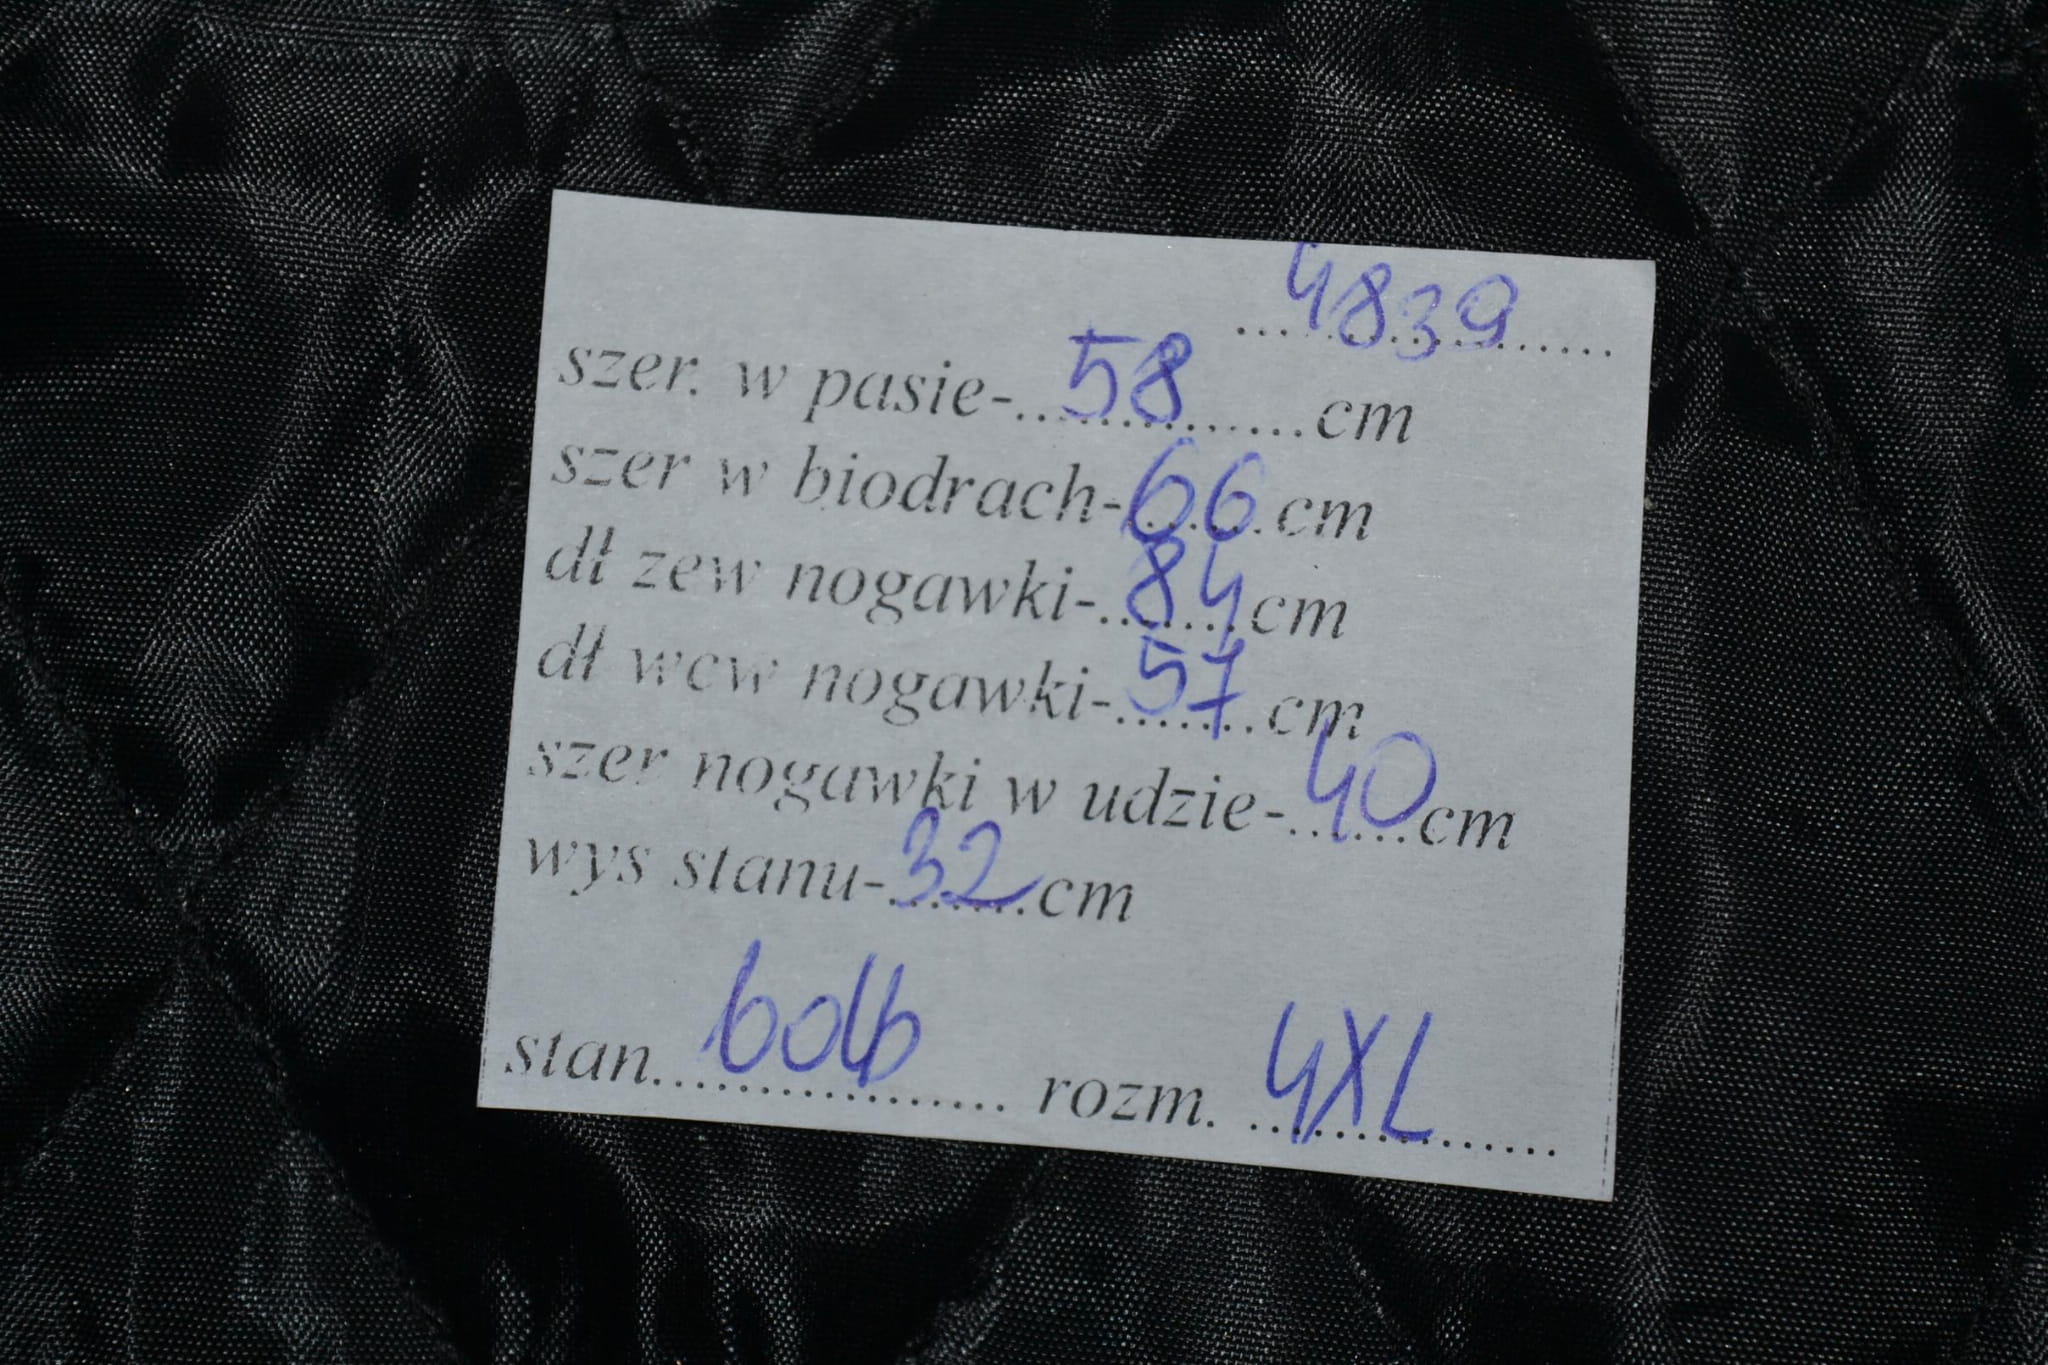 4839
szer. w pasie-...58...cm
szer w biodrach-66.cm
dł zew nogawki-..84cm
dł wew nogawki-.57.cm
szer nogawki w udzie-.40cm
wys stanu-32cm
stan........ rozm. 4XL